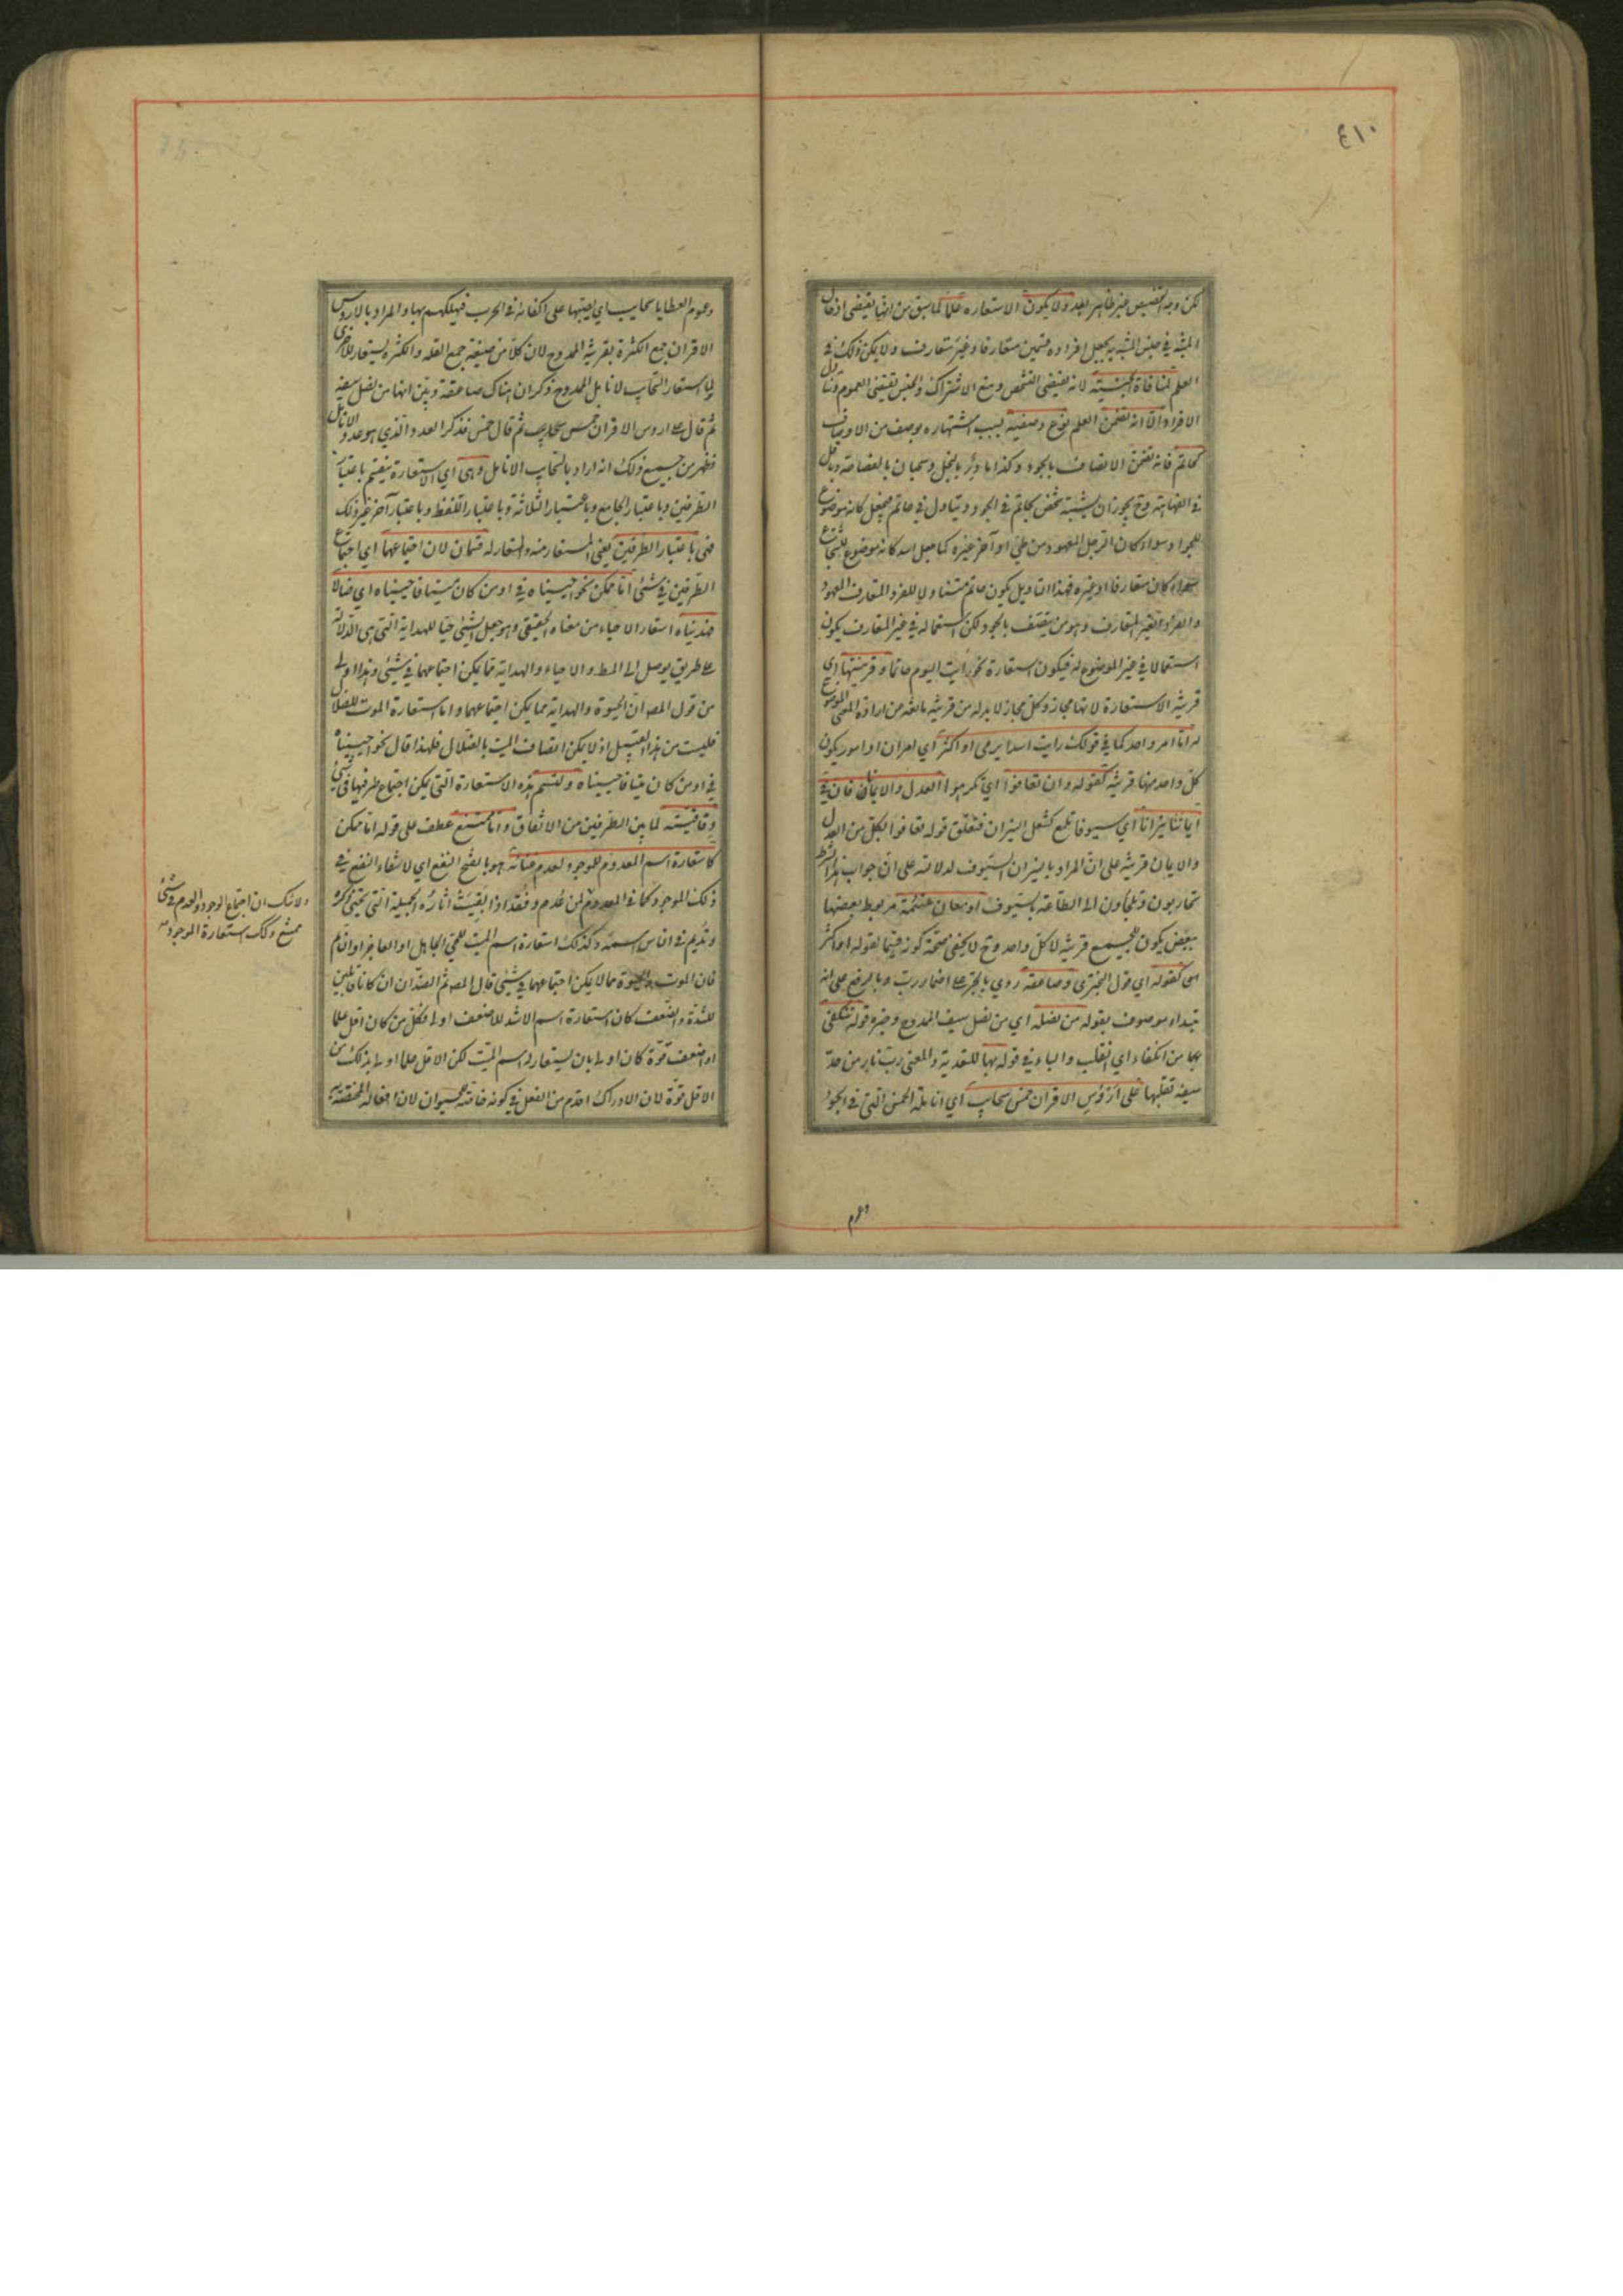 ٤١٠
لكن وجه التخصيص غير ظاهر بعد ولا يكون الاستعارة علما لما سبق من انها يقتضى ادخال
المشبه في جنس المشبه به بجعل افراده قسمين متعارفا وغير متعارف ولا يمكن ذلك في
العلم لمنافاة الجنسية لانه يقتضى التشخص ومنع الاشتراك والجنس يقتضى العموم وتناول
الافراد الا اذا تضمن العلم نوع وصفية بسبب اشتهاره بوصف من الاوصاف
كحاتم فانه تضمن الاتصاف بالجود وكذا مادر بالبخل وسحبان بالفصاحة وباقل
في الفهاهة وح يجوز ان يشبه شخص بحاتم في الجود ويتاول في حاتم فيجعل كانه موضوع
للجواد سواء كان الرجل المعهود من طى او آخر غيره كما جعل اسد كانه موضوع للشجاع
سواء كان متعارفا او غيره فبهذا التاويل يكون حاتم متناولا للفرد المتعارف المعهود
والفرد الغير المتعارف وهو من يتصف بالجود لكن استعماله في غير المتعارف يكون
استعمالا في غير الموضوع له فيكون استعارة نحو رأيت اليوم حاتما وقرينتها اي
قرينة الاستعارة لانها مجاز وكل مجاز لا بد له من قرينة مانعة من ارادة المعنى الموضوع
له اما امر واحد كما في قولك رايت اسدا يرمى او اكثر اي امران او امور يكون
كل واحد منها قرينة كقوله وان تعافوا اي تكرهوا العدل والايمانا فان في
ايماننا نيرانا اي سيوفا تلمع كشعل النيران فتعلق قوله تعافوا بكل من العدل
والايمان قرينة على ان المراد بالنيران السيوف لدلالته على ان جواب هذا الشرط
تحاربون وتلجاون الى الطاعة بالسيوف او معان ملتئمة مربوط بعضها
ببعض يكون الجميع قرينة لا كل واحد وح لا يخفى صحة كونه قسيما لقوله او اكثر
كقوله اي قول البحترى وصاعقة روي بالجر على اضمار رب وبالرفع على انه
مبتداء موصوف بقوله من نصله اي من نصل سيف الممدوح وخبره قوله تنكفى
بها من انكفاء اي انقلب والباء في قوله بها للتعدية والمعنى رب نار من حد
سيفه تقلبها على ارؤس الاقران خمس سحايب اي انامله الخمس التي في الجود
وعموم العطايا سحايب اي يصبها على اكفائه في الحرب فيهلكهم بها والمراد بالارؤس
الاقران جمع الكثرة بقرينة المدح لان كلا من صيغة جمع القلة والكثرة يستعار للاخرى
لما استعار السحايب لانامل الممدوح ذكر ان هناك صاعقة وبين انها من نصل سيفه
ثم قال على ارؤس الاقران خمس سحايب ثم قال خمس فذكر العدد الذي هو عدد الانامل
فظهر من جميع ذلك انه اراد بالسحايب الانامل وهى اي الاستعارة ينقسم باعتبار
الطرفين وباعتبار الجامع وباعتبار الثلاثة وباعتبار اللفظ وباعتبار آخر غير ذلك
فهى باعتبار الطرفين يعنى المستعار منه والمستعار له قسمان لان اجتماعهما اي اجتماع
الطرفين في شئ اما ممكن نحو احييناه في او من كان ميتا فاحييناه اي ضالا
فهديناه استعار الاحياء من معناه الحقيقى وهو جعل الشئ حيا للهداية التي هى الدلالة
على طريق يوصل الى المط والاحياء والهداية مما يمكن اجتماعهما في شئ وهذا اولى
من قول المصه ان الحيوة والهداية مما يمكن اجتماعهما واما استعارة الموت للضلال
فليست من هذا القبيل اذ لا يمكن اتصاف الميت بالضلال فلهذا قال نحو احييناه
في او من كان ميتا فاحييناه ولتسم هذه الاستعارة التي يمكن اجتماع طرفيها في شئ
وفاقية لما بين الطرفين من الاتفاق واما ممتنع عطف على قوله اما ممكن
كاستعارة اسم المعدوم للموجود لعدم غنائه هو بالفتح النفع اي لانتفاء النفع في
ذلك الموجود كما في المعدوم لمن عدم وفقد اذا بقيت اثاره الجميلة التي تحيى ذكره
وتديم في الناس اسمه وكذلك استعارة اسم الميت للحى الجاهل او العاجز او النائم
فان الموت والحيوة مما لا يمكن اجتماعهما في شئ قال المصه ثم الضدان ان كانا قابلين
للشدة والضعف كان استعارة اسم الاشد للاضعف اولى فكل من كان اقل علما
او اضعف قوة كان اولى بان يستعار له اسم الميت لكن الاقل علما اولى بذلك من
الاقل قوة لان الادراك اقدم من الفعل في كونه خاصة للحيوان لان افعاله المختصة به
ولا شك ان اجتماع الوجود والعدم في شئ
ممتنع وكذلك استعارة الموجود